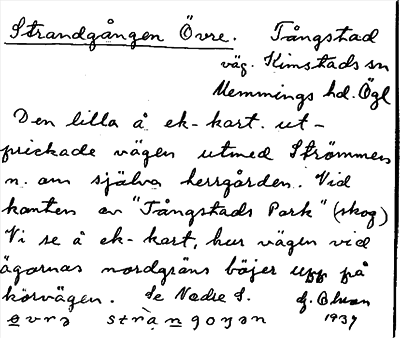 Strandgången Övre. Tångstad
väg. Kimstads sn
Memmings hd. Ögl
Den lilla å ek-kart. ut-
prickade vägen utmed Strömmen
n. om själva herrgården. Vid
kanten av "Tångstads Park" (skog)
Vi se å ek-kart, hur vägen vid
ägornas nordgräns böjer upp på
körvägen. Se Nedre S.
1937